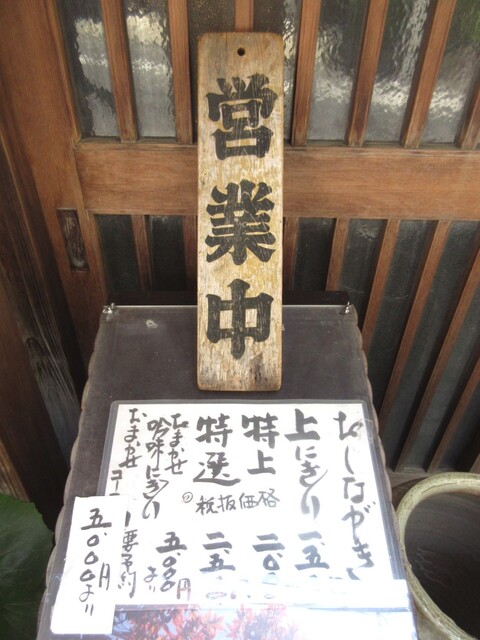 営業中
おしながき
上にぎり 一、五
特上 二、〇
特選 二、五
の税抜価格
おまかせ
吟味にぎり 五、〇〇〇円より
おまかせコー
要予約
五、〇〇〇円より